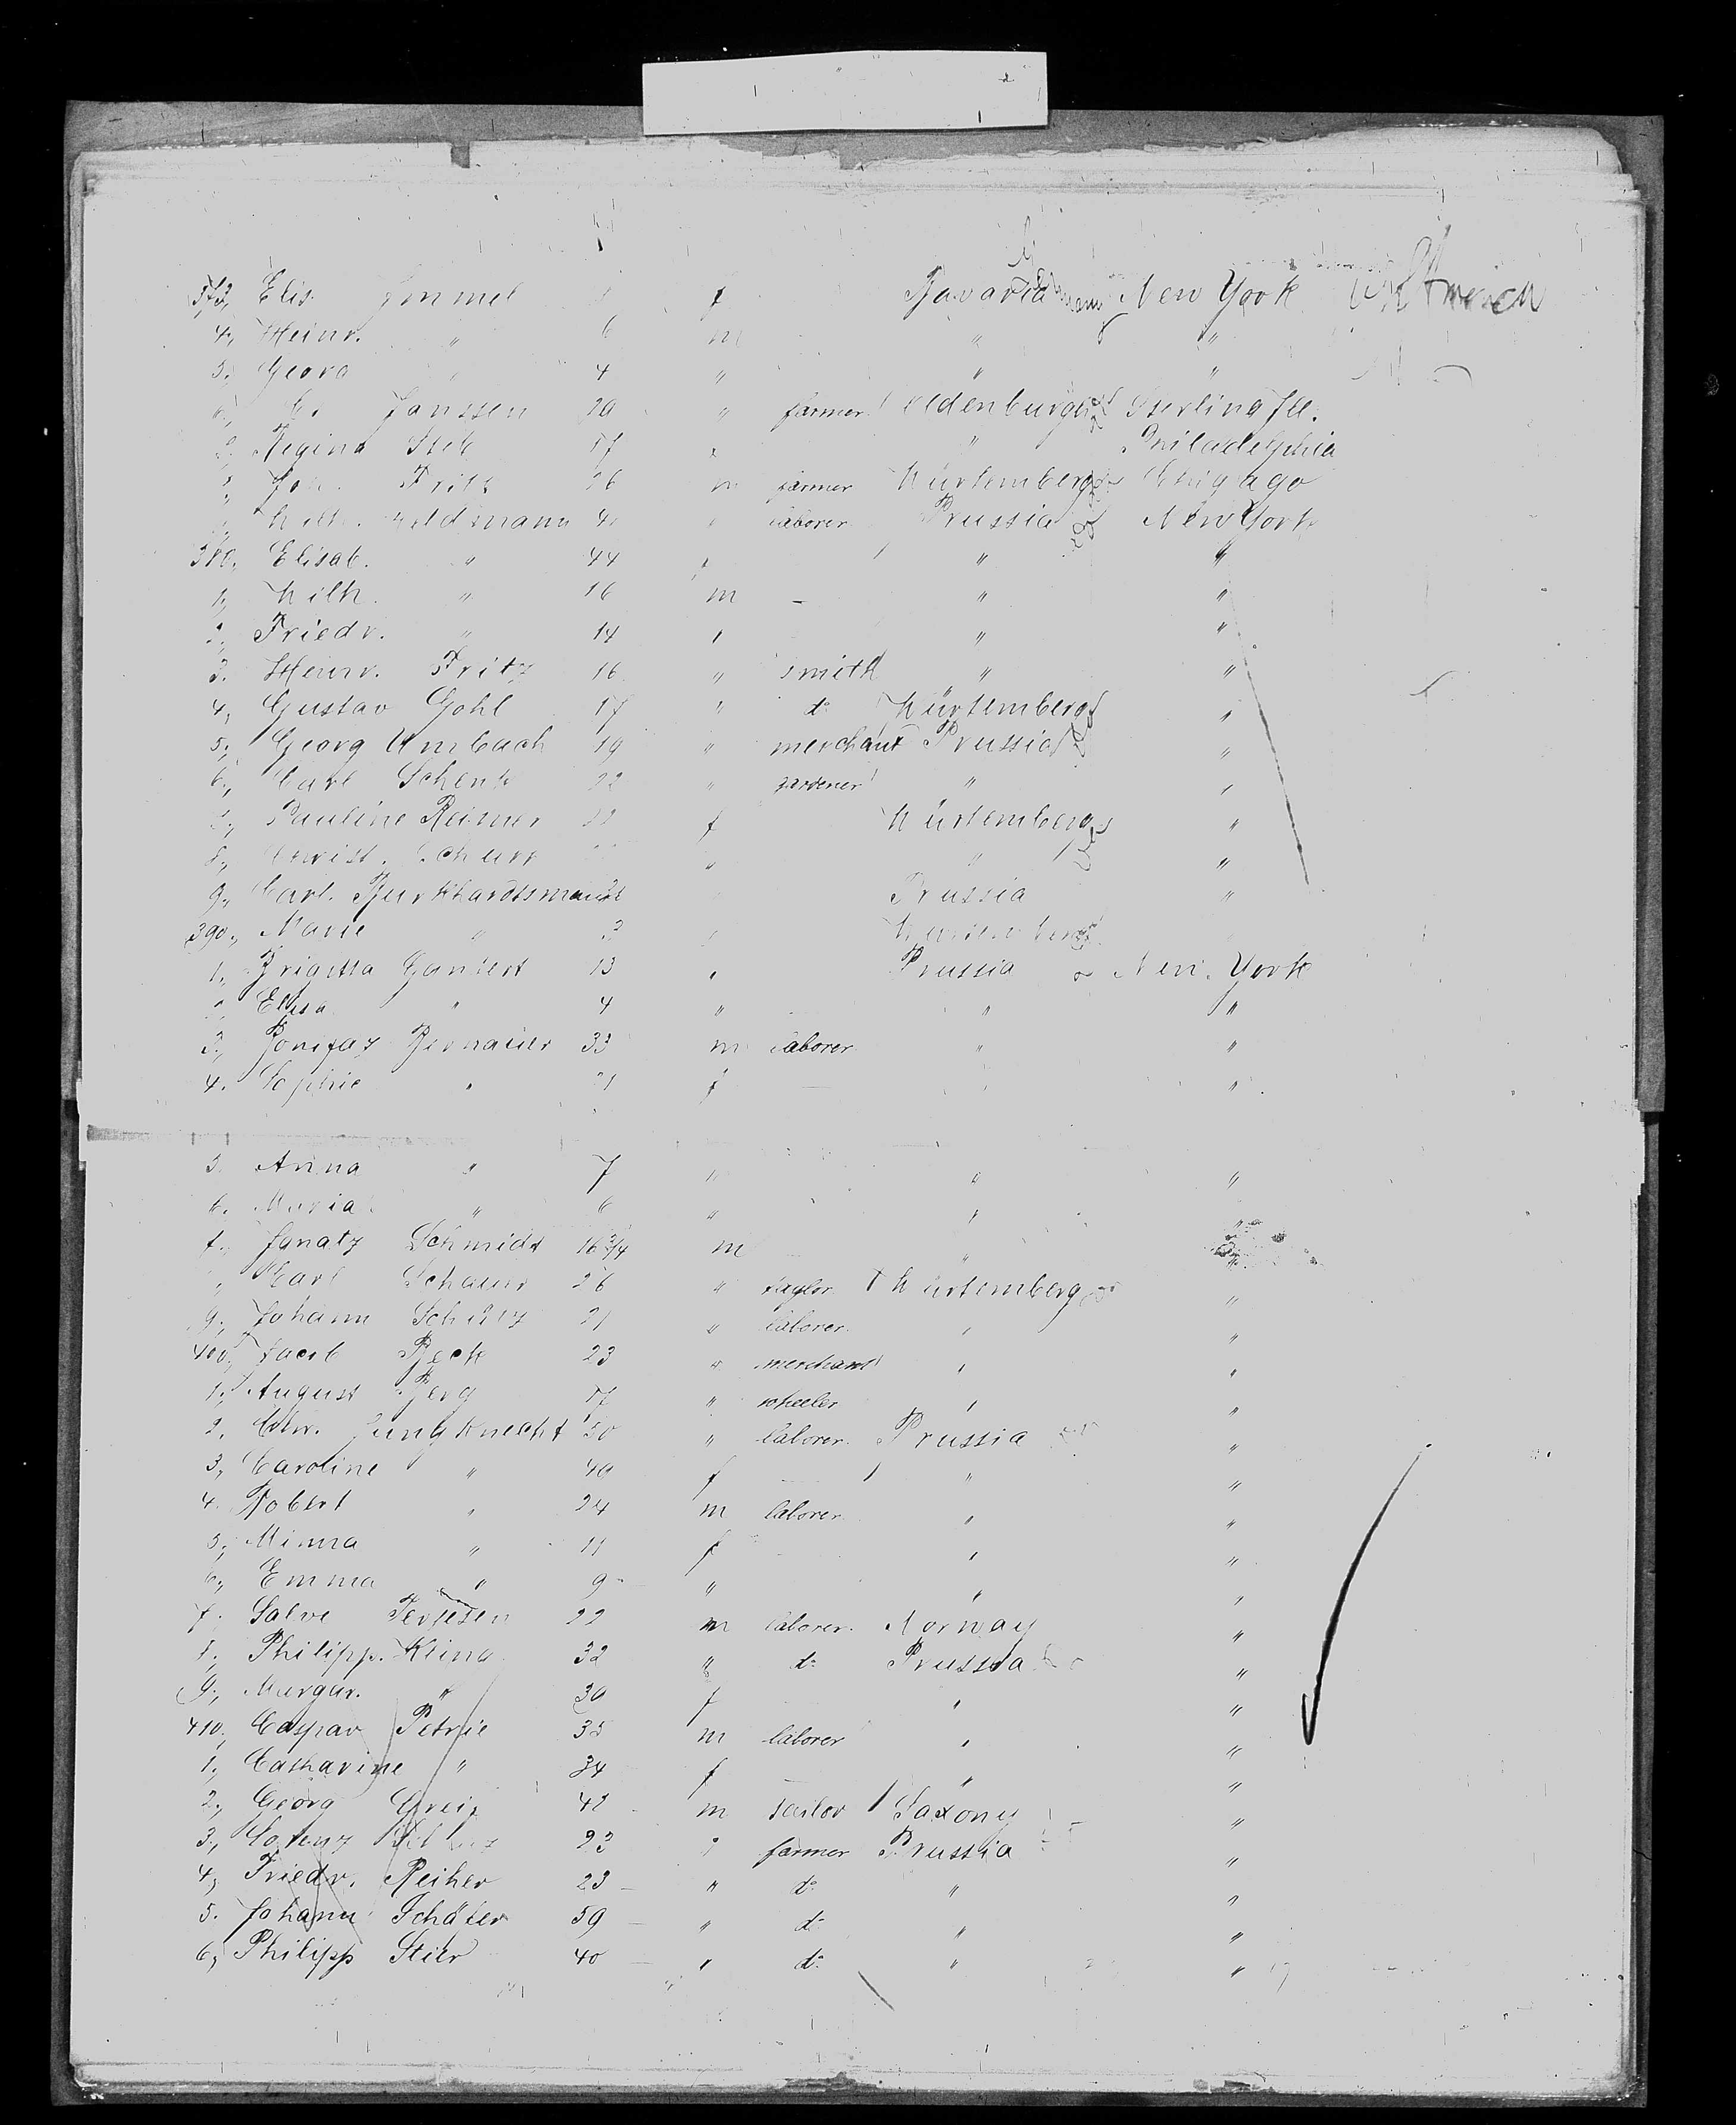 373, Elis. Immel f Bavaria New York
4, Heinr. " 6 m " "
5. Georg " 4 " " "
Janssen 20 " farmer Oldenburg Sterling Ill.
Regina Stib 17 " Philadelphia
Joh. Fritz 26 m farmer Würtemberg Chigago
Wilh. Feldmann 40 " laborer Prussia New York
380, Elisab. " 44 f " "
1, Wilh. " 16 m – " "
2, Friedr. " 14 " " "
3. Heinr. Fritz 16 " smith " "
4, Gustav Gohl 17 " do Würtemberg "
5, Georg Umbach 19 " merchant Prussia "
6, Carl Schenk 22 " gardener " "
7, Pauline Reimer 22 f Würtemberg "
8, Christ. " " "
9, Carl. Burkhardtsmaier Prussia "
390, Marie " 3 Würtemberg
1, Brigitta Gantert 13 " Prussia New York
2, Elisa " 4 " " "
3, Bonifaz Bernauer 33 m laborer " "
4. Sophie " 21 f " "
5. Anna " 7 " " "
6. Maria " 6 " " "
7. Ignatz Schmidt 16 3/4 m " "
" Carl Schaur 26 " taylor Würtemberg "
9, Johann 21 " laborer " "
400, Jacob Beck 23 " merchant " "
1, August Berg 17 " " "
2, Chr. Jungknecht 50 " laborer Prussia "
3, Caroline " 40 f " "
4. Robert " 24 m laborer " "
5, Minna " 11 f " "
6, Emma " 9 " " "
7. Salve Terjesen 22 m laborer Norway "
8, Philipp. Kling 32 " do Prussia "
9, Margar. " 30 f " "
410, Caspar Petrie 35 m laborer " "
1, Catharine " 34 f " "
2, Georg Greif 42 m tailor Saxony "
3, Lorenz 23 " farmer Prussia "
4, Friedr. Reiher 23 " do " "
5. Johann Schäfer 59 " do " "
6, Philipp Stier 40 " do " "